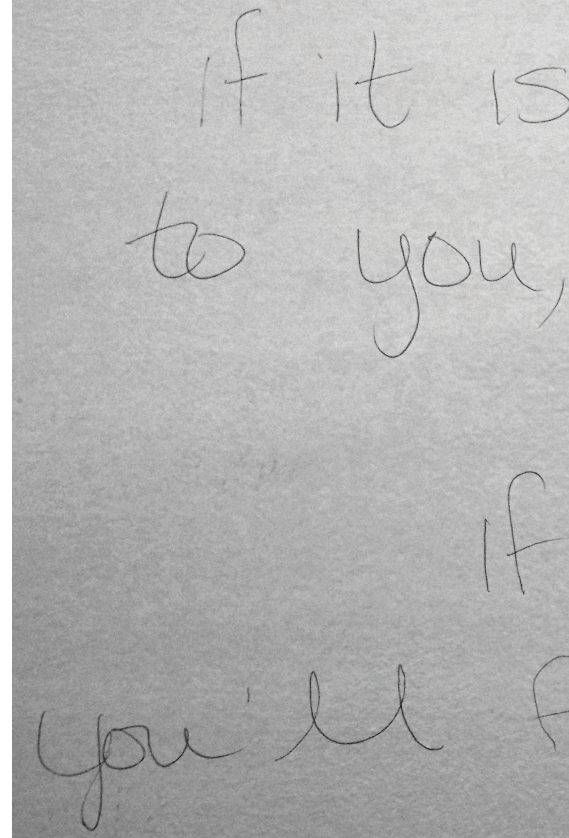 if it is
to you,
if
you'll